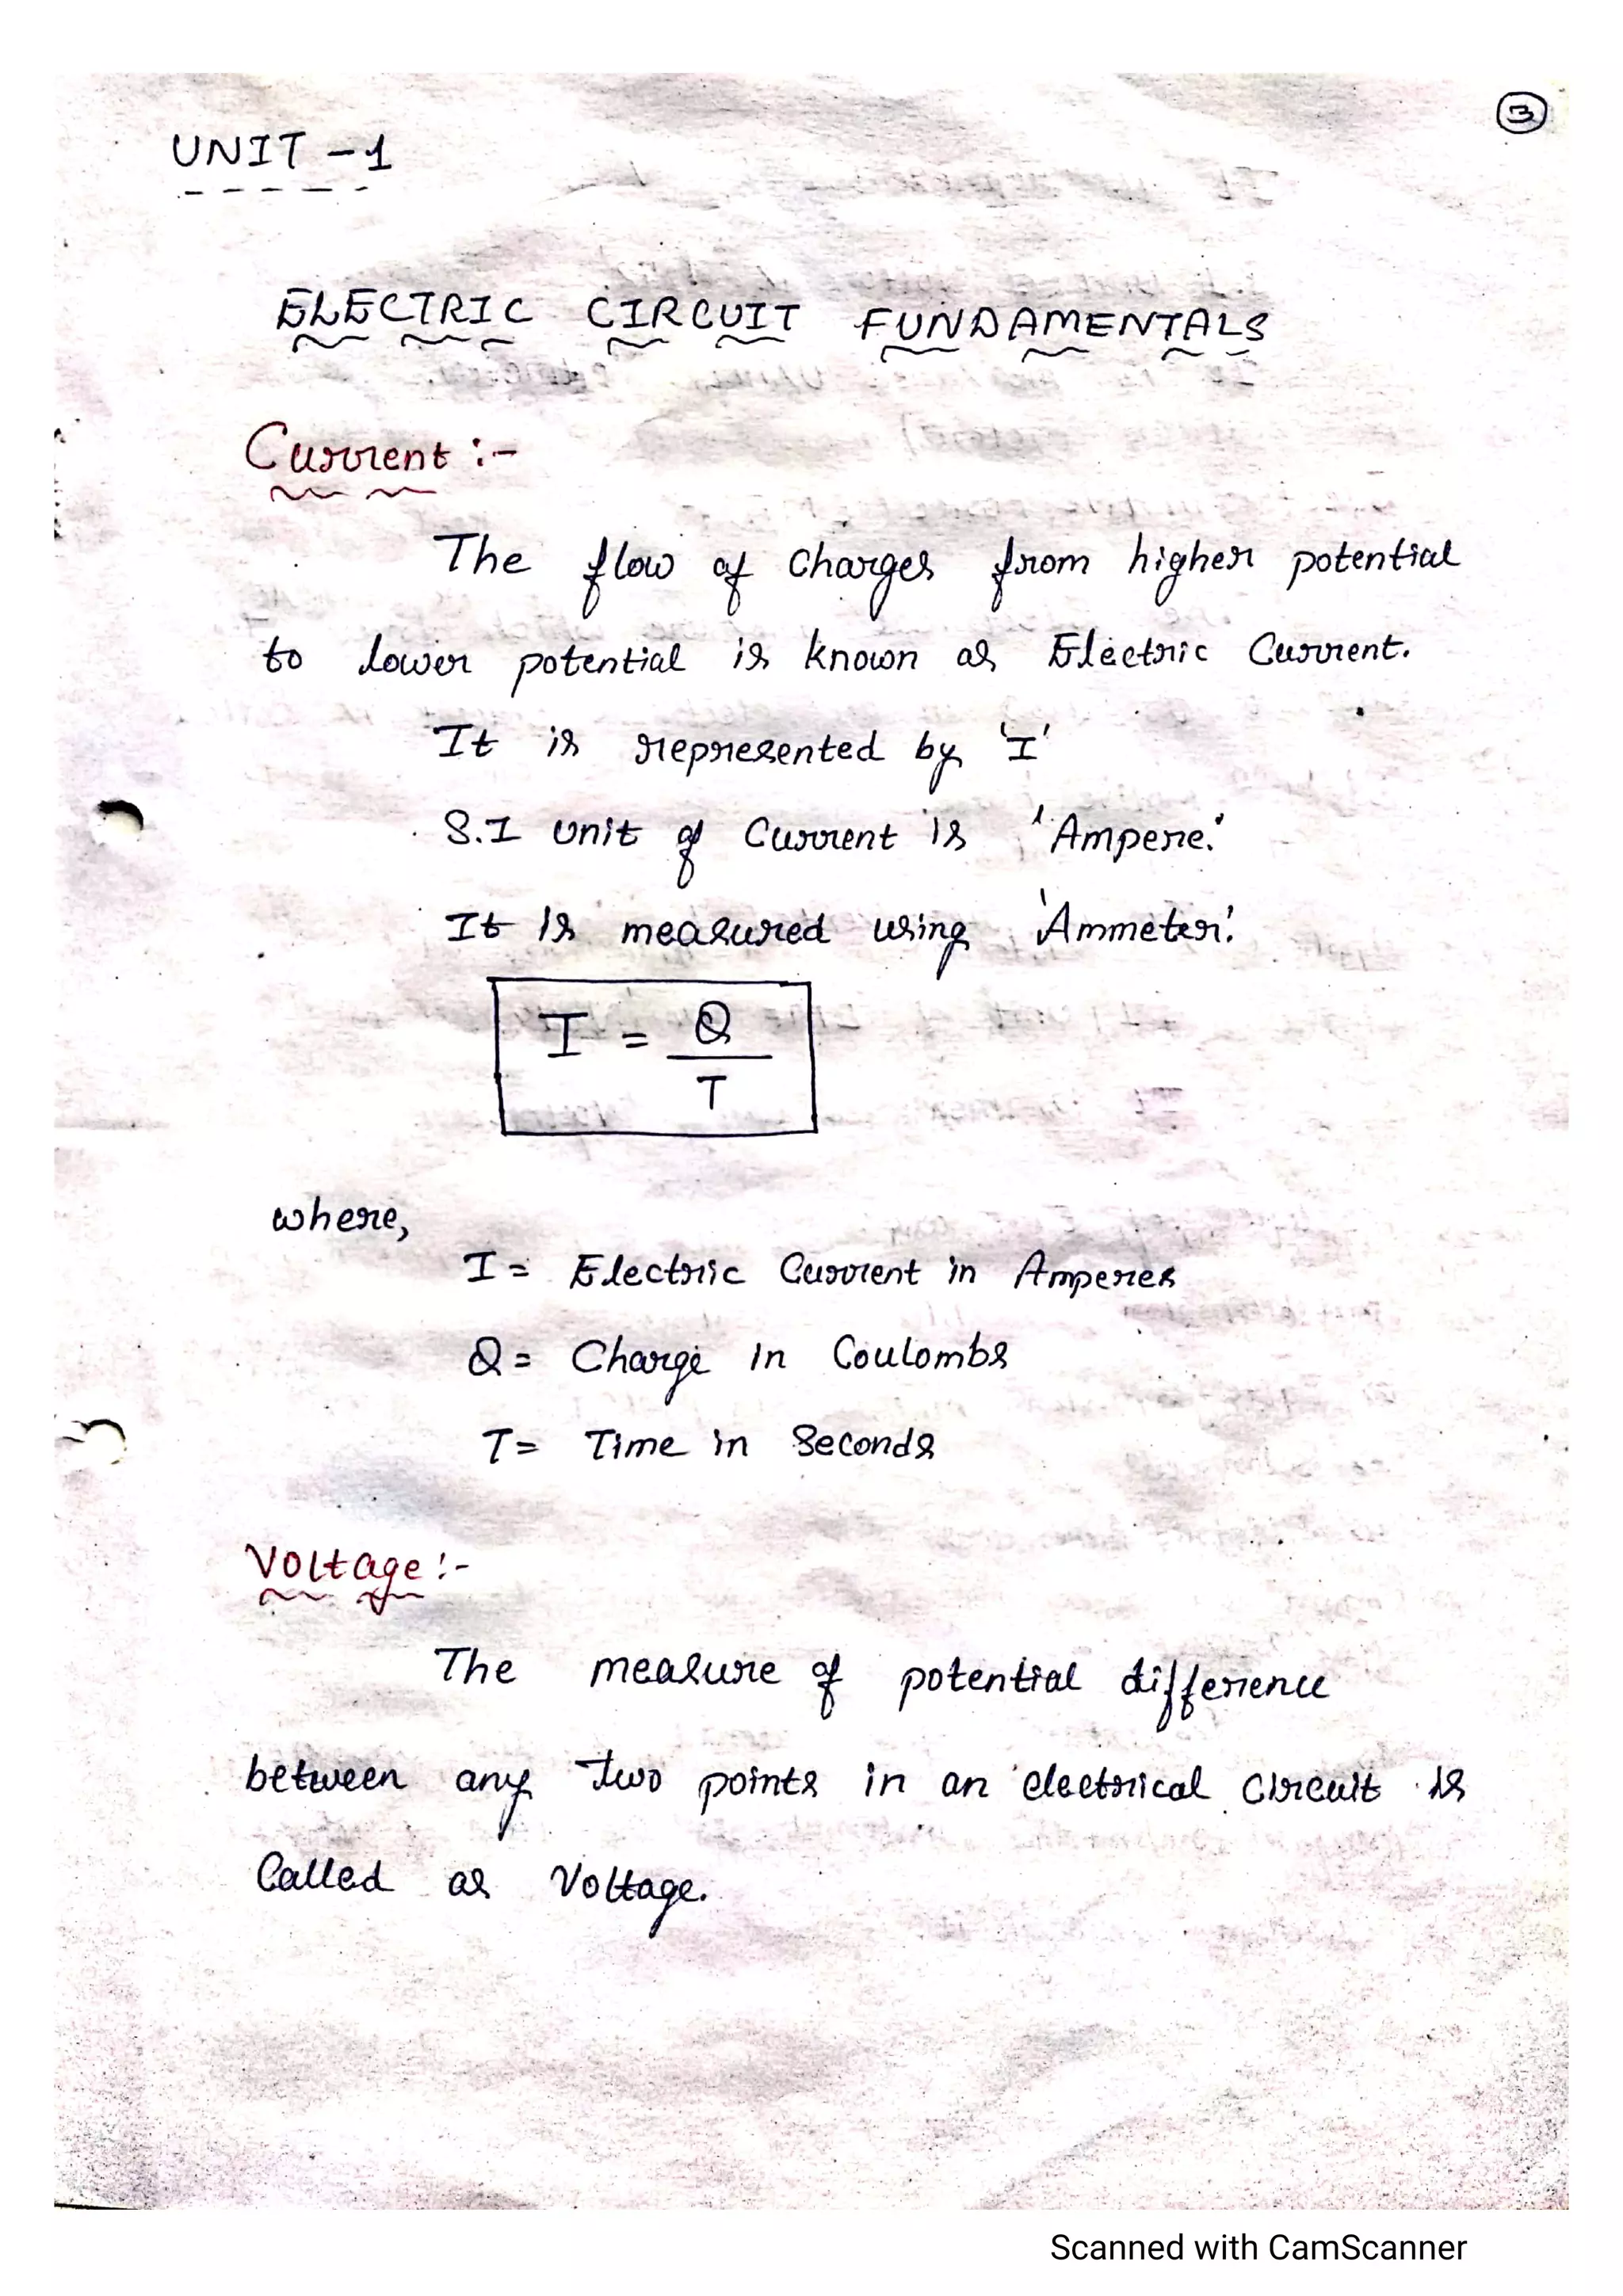 3
UNIT - 1
ELECTRIC CIRCUIT FUNDAMENTALS
Current :-
The flow of Charges from higher potential
to lower potential is known as Electric Current.
It is represented by 'I'
S.I Unit of Current is 'Ampere.'
It Is measured using 'Ammeter.'
I = Q
T
where,
I = Electric Current in Amperes
Q = Charge in Coulombs
T = Time in Seconds
Voltage :-
The measure of potential difference
between any two points in an electrical Circuit is
Called as Voltage.
Scanned with CamScanner